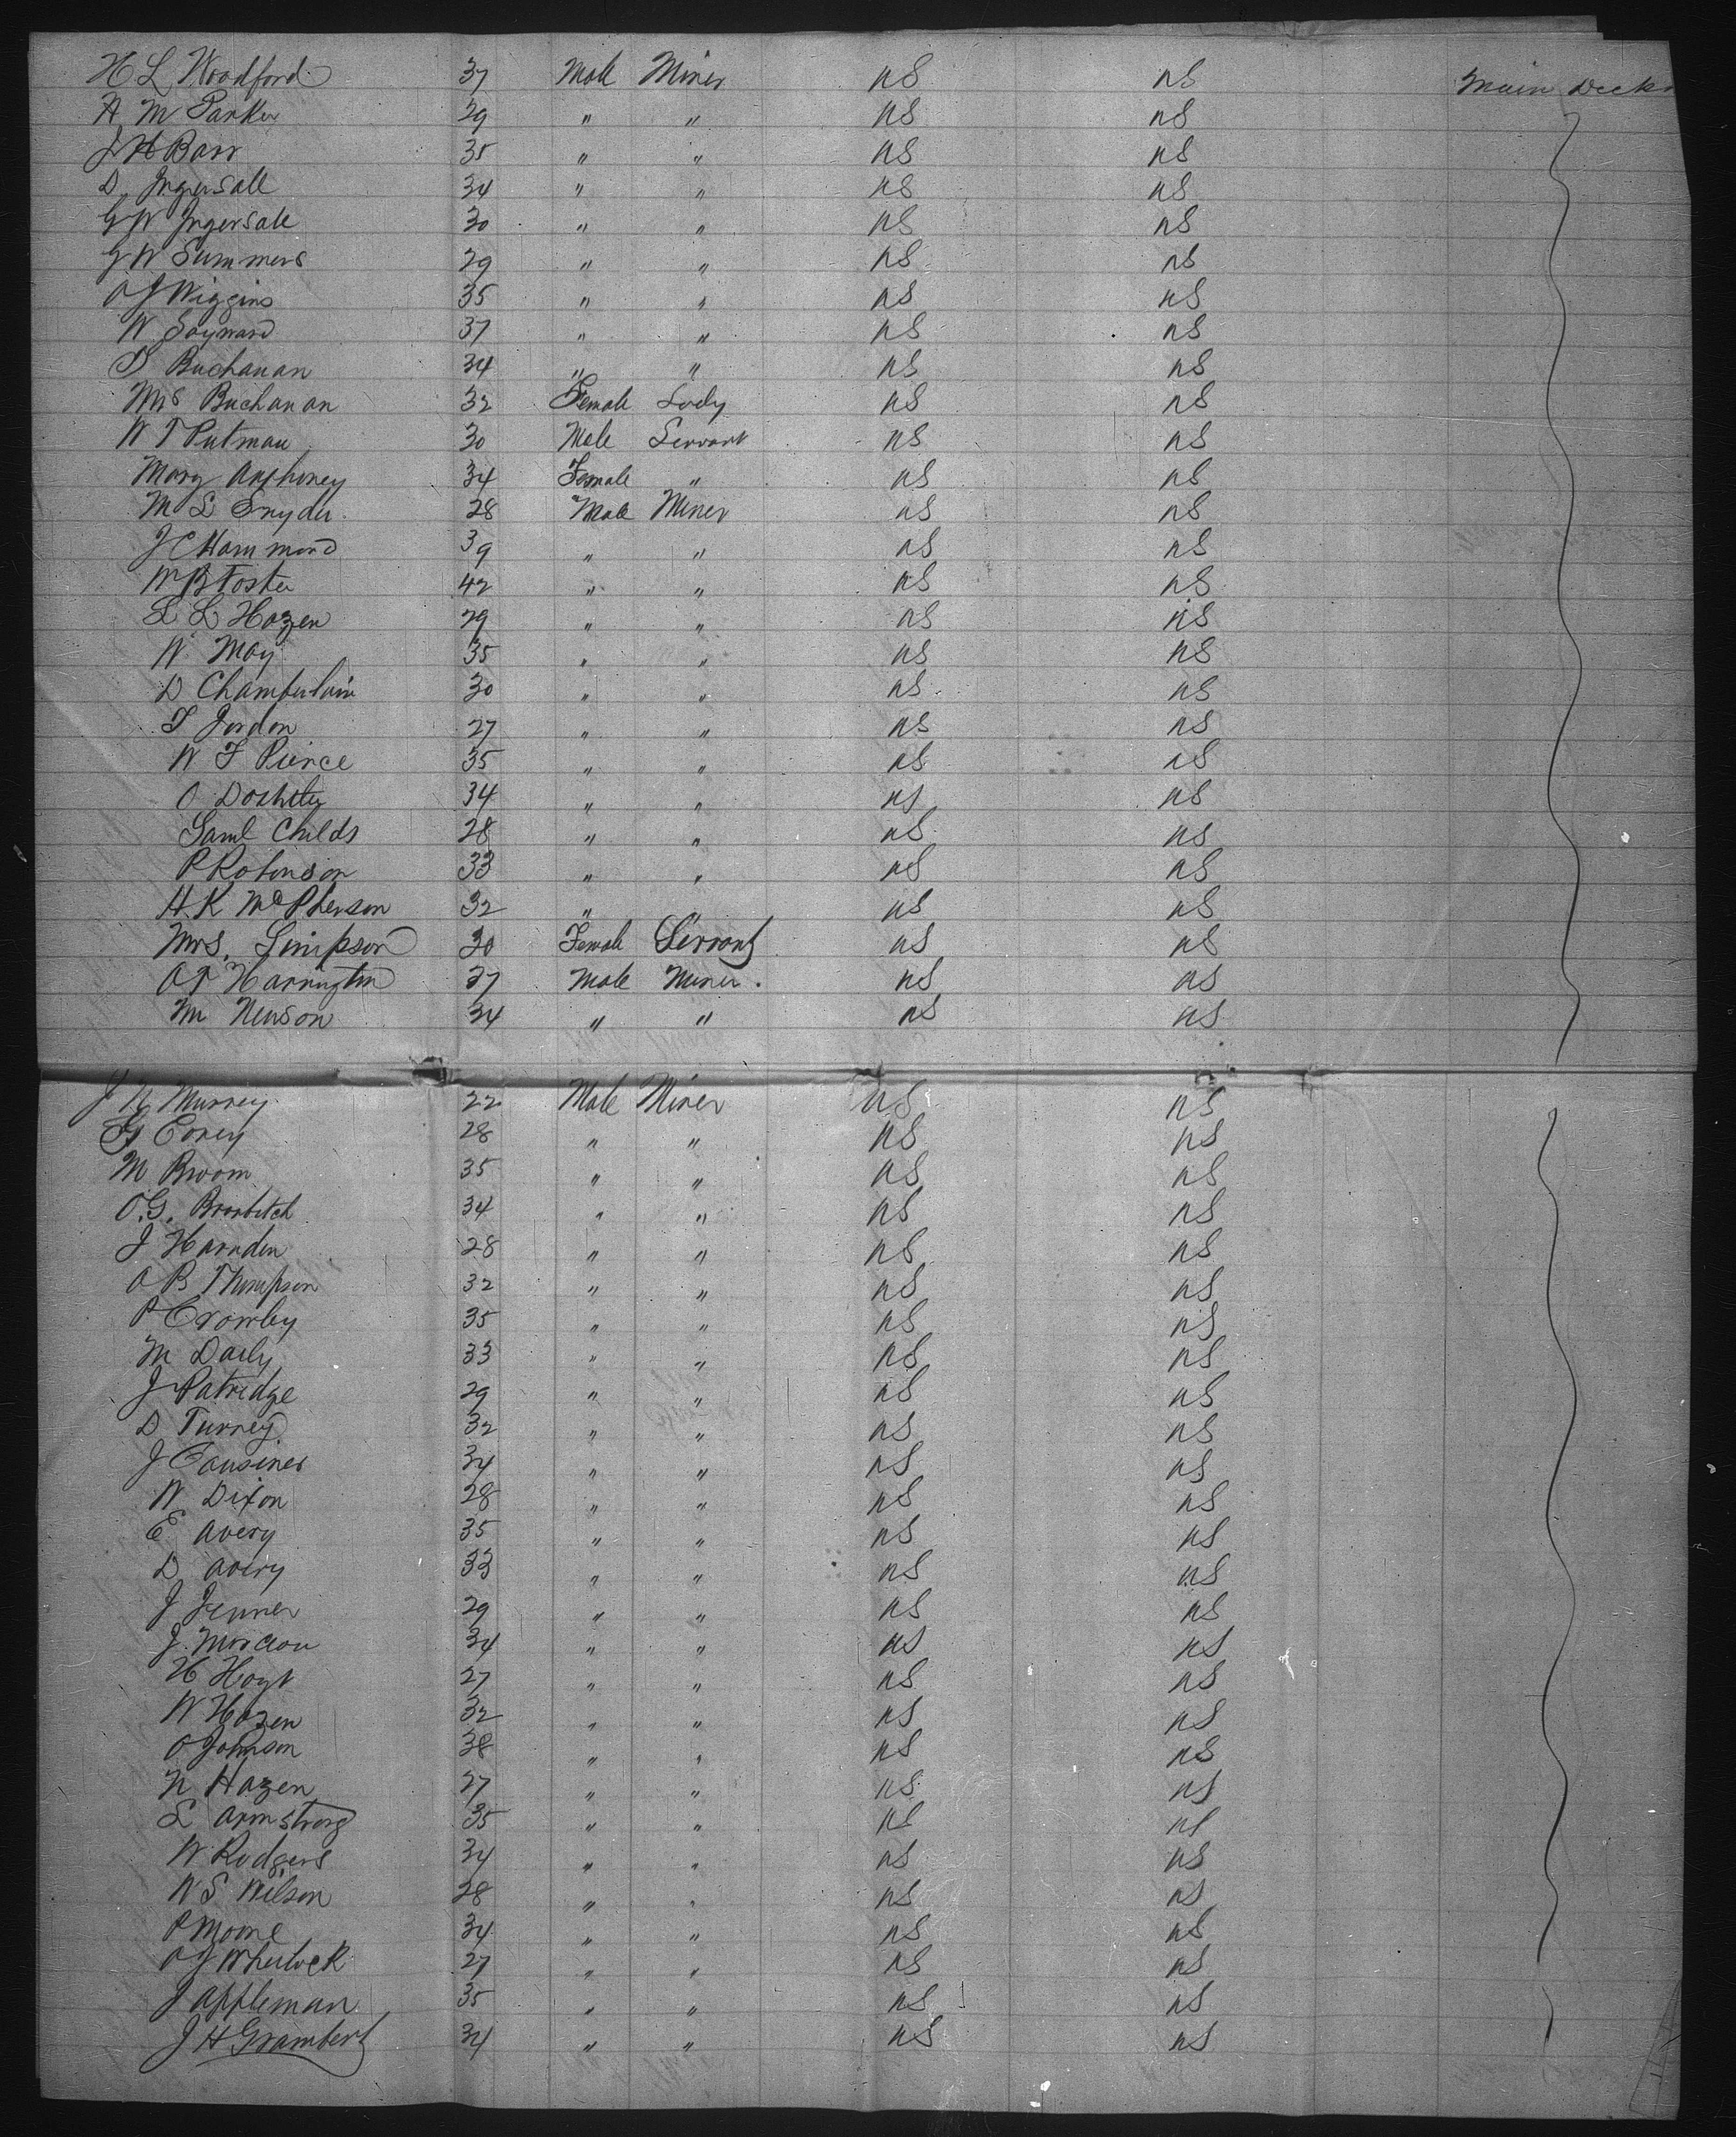 H L Woodford 37 Male Miner US US Main Deck
A M Parker 29 " " US US
J H Barr 35 " " US US
D. Ingersall 34 " " US US
G W Ingersall 30 " " US US
G W Summers 29 " " US US
O J Wiggins 35 " " US US
W Sayward 37 " " US US
T Buchanan 34 " " US US
Mrs Buchanan 32 Female Lady US US
W T Putman 30 Male Servant US US
Mary Anthoney 34 Female " US US
M L Snyder 28 Male Miner US US
J C Hammond 39 " " US US
W B Foster 42 " " US US
L L Hazen 29 " " US US
W May 35 " " US US
D Chamberlain 30 " " US US
T Jordon 27 " " US US
W F Pierce 35 " " US US
O 34 " " US US
Saml Childs 28 " " US US
P Robinson 33 " " US US
H. K McPherson 32 " " US US
Mrs. Simpson 30 Female Servant US US
O P Harrington 27 Male Miner US US
M Newson 34 " " US US
J N Murrey 22 Male Miner US US
G Corey 28 " " US US
M Broom 35 " " US US
O. G. 34 " " US US
J Harnden 28 " " US US
O B Thompson 32 " " US US
P Crowley 35 " " US US
M Daily 33 " " US US
J Patridge 29 " " US US
D Turney 32 " " US US
J Cousines 34 " " US US
W Dixon 28 " " US US
E Avery 35 " " US US
D Avery 33 " " US US
J Jenner 29 " " US US
J. 34 " " US US
H Hoyt 27 " " US US
W Hazen 32 " " US US
O Johnson 38 " " US US
N Hazen 27 " " US US
L Armstrong 35 " " US US
W Rodgers 34 " " US US
W S Wilson 28 " " US US
P Moore 34 " " US US
O J Wheelock 27 " " US US
J Appleman 35 " " US US
J H Grambert 34 " " US US